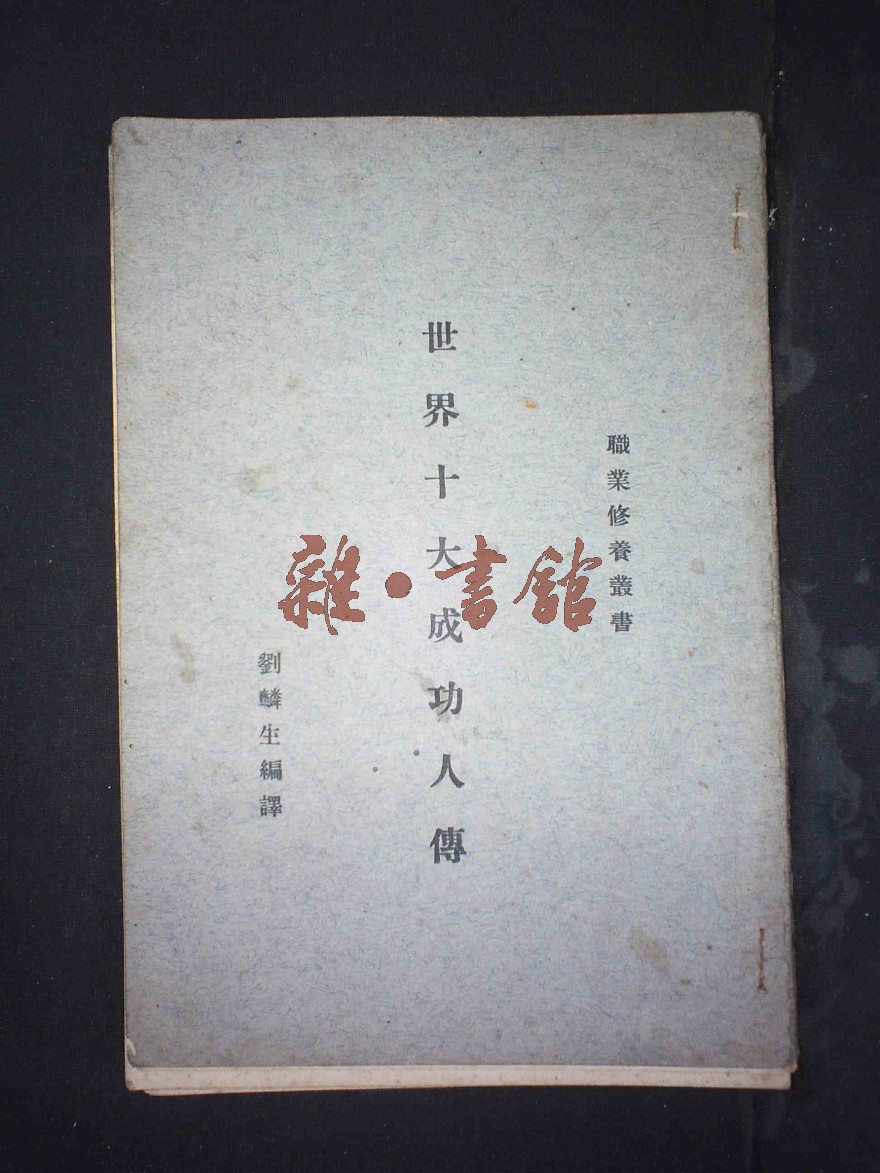 職業修養叢書
世界十大成功人傳
劉麟生編譯
雜·書館